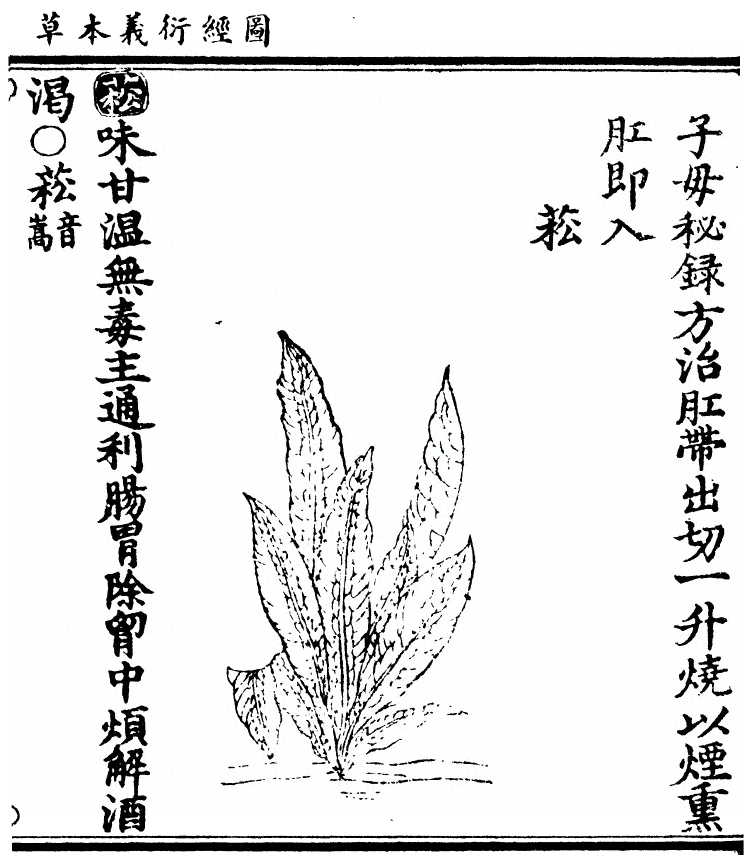 圖經衍義本草
子母秘録方治肛帶出切一升燒以煙熏
肛即入
菘
菘味甘温無毒主通利腸胃除胷中煩解酒
渴○菘音嵩